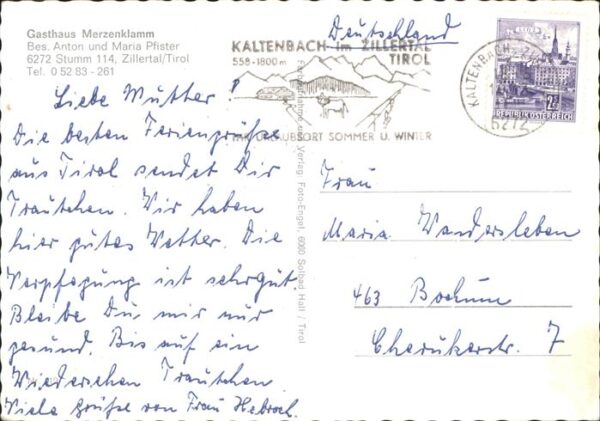 Gasthaus Merzenklamm
Bes. Anton und Maria Pfister
6272 Stumm 114, Zillertal/Tirol
Tel. 0 52 83 - 261
Liebe Mutter!
Die besten Feriengrüße
aus Tirol sendet Dir
Trautchen. Wir haben
hier gutes Wetter. Die
Verpflegung ist sehr gut.
Bleibe Du mir nur
gesund. Bis auf ein
Wiedersehen Trautchen
Viele Grüße von Frau
Verlag: Foto-Engel, 6060 Solbad Hall / Tirol
Deutschland
KALTENBACH im ZILLERTAL
558-1800 m TIROL
URLAUBSORT SOMMER U. WINTER
KALTENBACH
6272
REPUBLIK ÖSTERREICH
Frau
Maria Wandersleben
463 Bochum
Cheruskerstr. 7